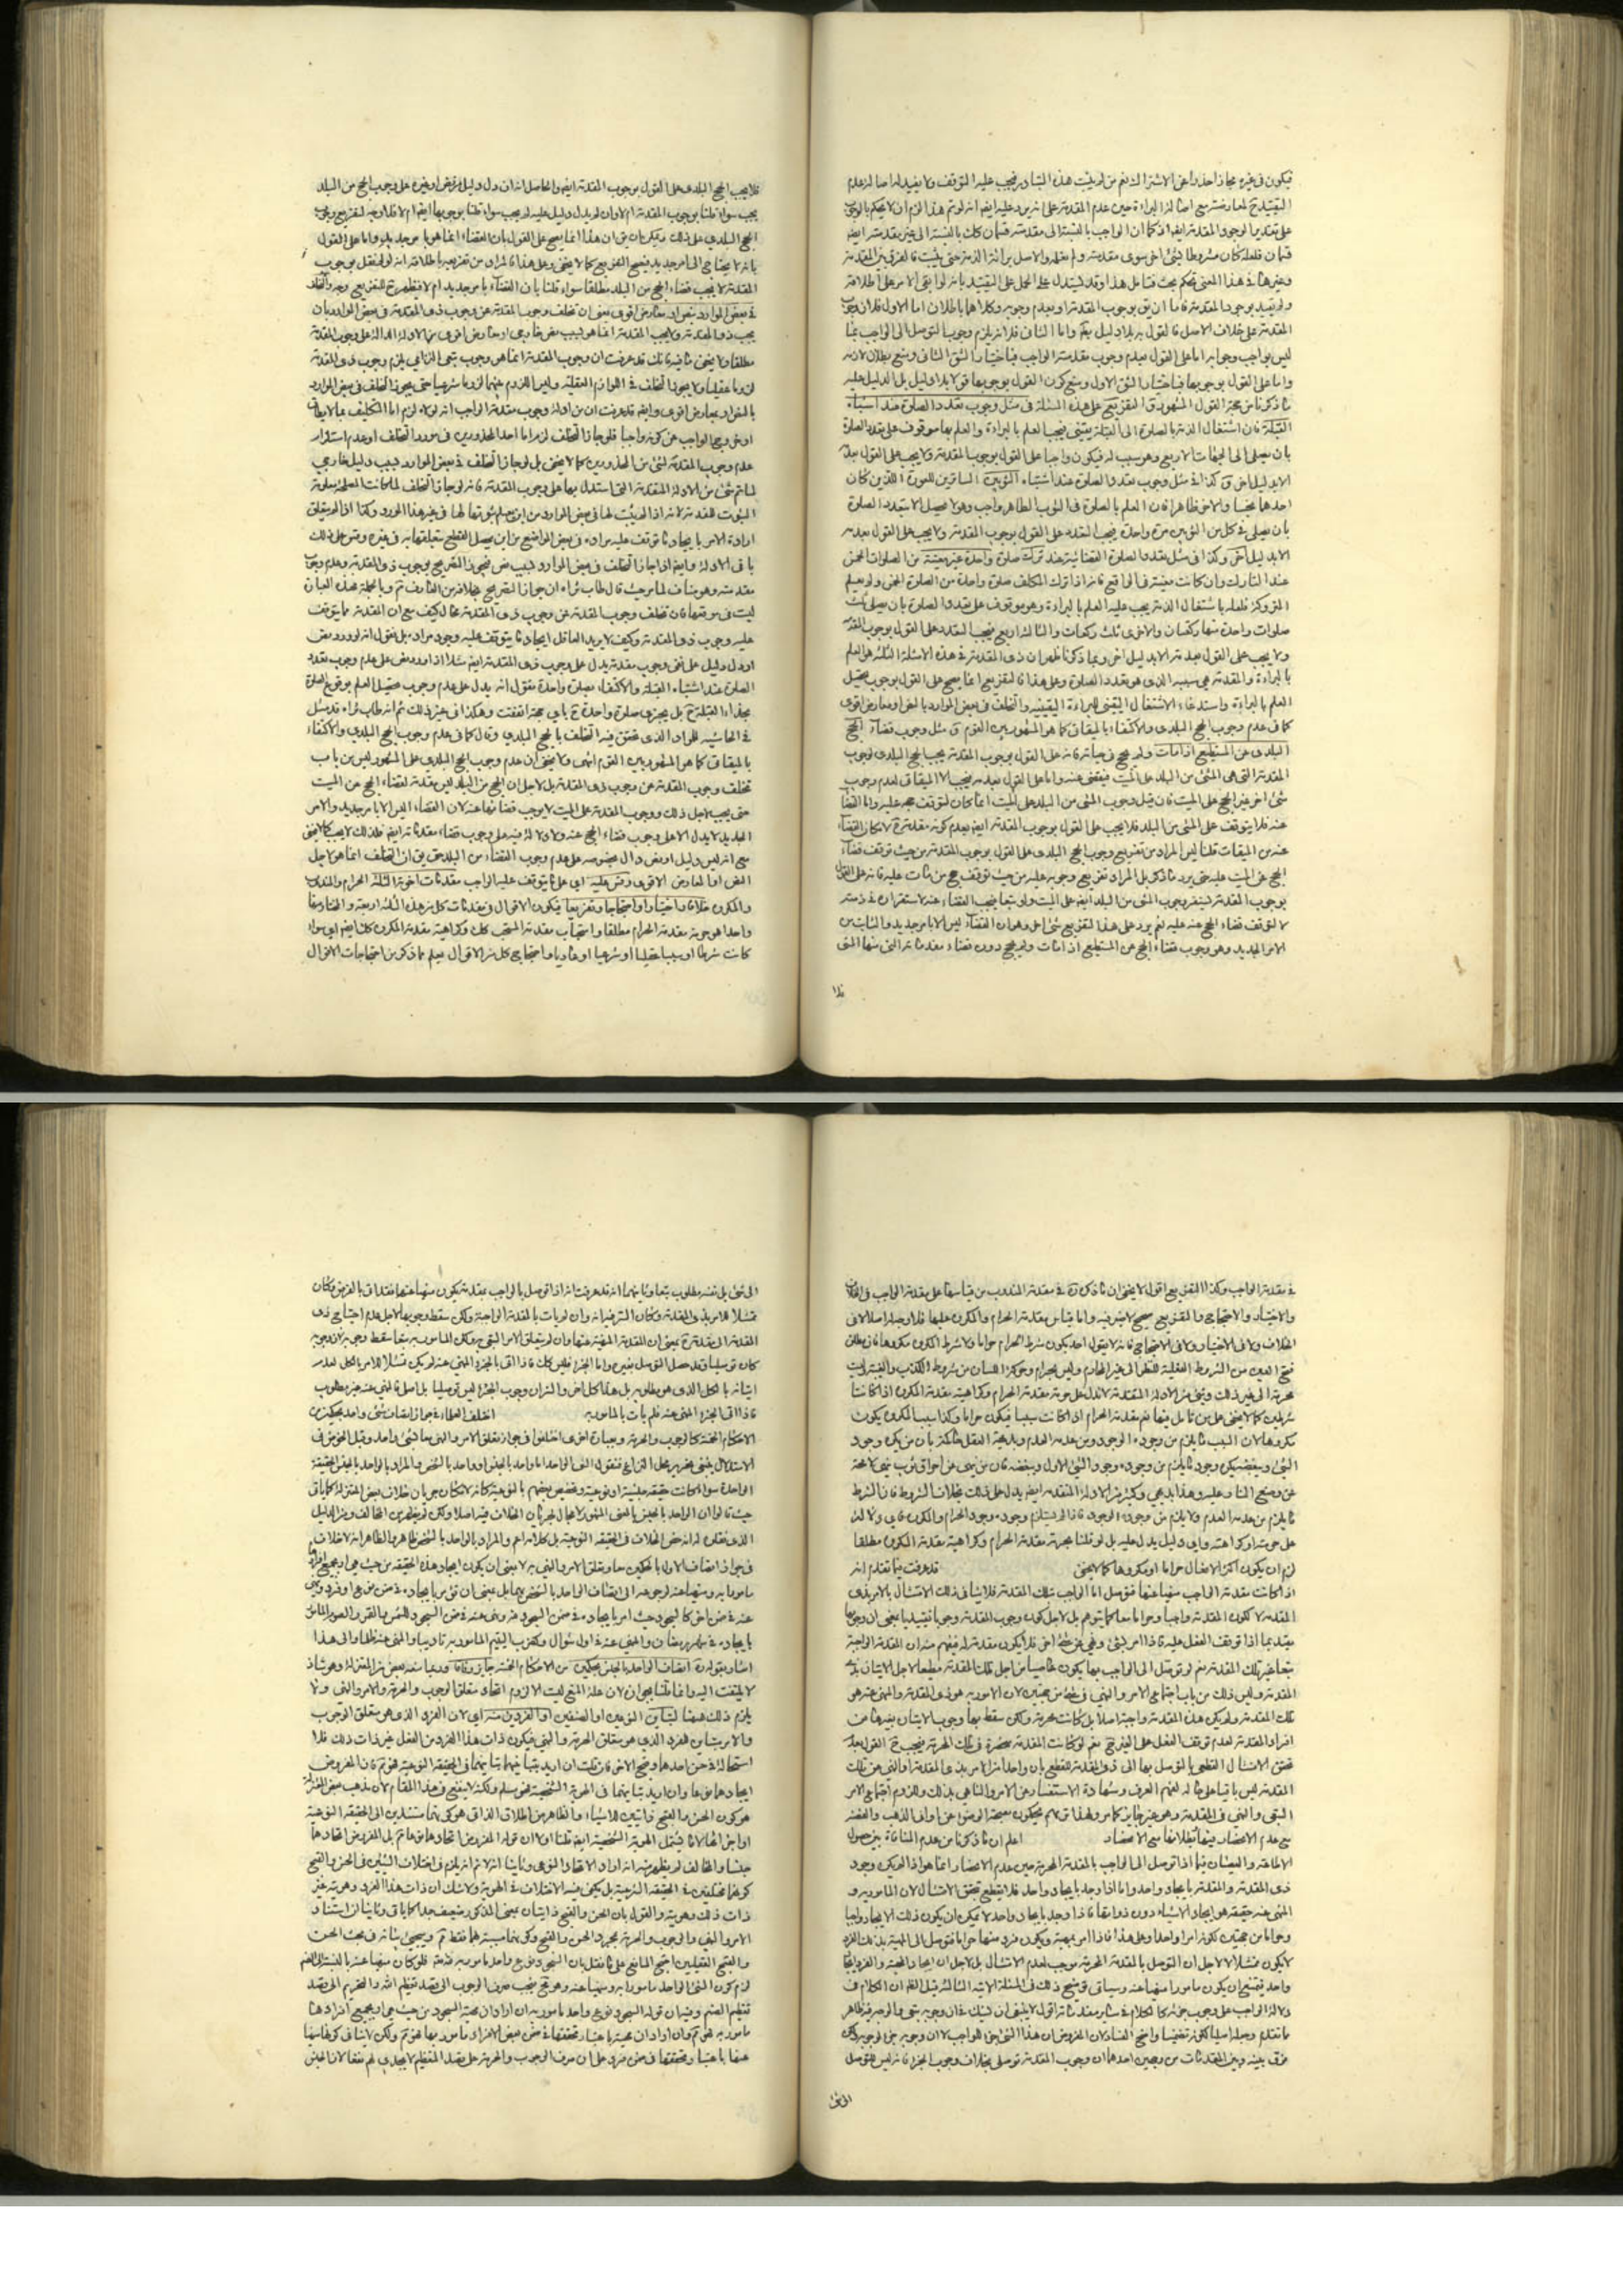 فيكون في غيره مجازا حذرا عن الاشتراك نعم من لم يثبت هذه التبادر فيجب عليه التوقف ولا يفيد له اصالة عدم
التقييد لمعارضته مع اصالة البراءة حين عدم المقدمة على انه يرد عليه ايضا انه لو تم هذا لزم ان لا يحكم بالوجوب
على تقدير الوجود المقدمة ايضا اذ كما ان الواجب بالنسبة الى مقدمته قسمان كذلك بالنسبة الى غير مقدمته ايضا
قسمان فلعله كان مشروطا بشئ اخر سوى مقدمته ولم نعلمه والاصل براءة الذمة حتى يثبت فالفرق بين المقدمة
وغيرها في هذا المعنى تحكم بحت فتامل هذا وقد يستدل على الحمل على التقييد بانه لو ابقى الامر على اطلاقه
ولم يقيد بوجود المقدمة فاما ان يق بوجوب المقدمة او بعدم وجوبه وكلاهما باطلان اما الاول فلان وجوب
المقدمة على خلاف الاصل فالقول به بلا دليل واما الثاني فلانه يلزم وجوب التوصل الى الواجب بما
ليس بواجب وجوابه اما على القول بعدم وجوب مقدمة الواجب فباختيار الشق الثاني ومنع بطلان لازمه
واما على القول بوجوبها فباختيار الشق الاول ومنع كون القول بوجوبها قولا بلا دليل بل الدليل عليه
ما ذكرنا من حجة القول المشهور ق التفريع على هذه المسئلة في مثل وجوب تعدد الصلوة عند اشتباه
القبلة فان اشتغال الذمة بالصلوة الى القبلة يقيني فيجب العلم بالبراءة والعلم بها موقوف على تعدد الصلوة
بان يصلى الى الجهات الاربع وهو سبب له فيكون واجبا على القول بوجوب المقدمة ولا يجب على القول بعدمه
الا بدليل اخر ق كذا في مثل وجوب تعدد الصلوة عند اشتباه الثوبين الساترين للعورة اللذين كان
احدهما نجسا والاخر طاهرا فان العلم بالصلوة في الثوب الطاهر واجب وهو لا يحصل الا بتعدد الصلوة
بان يصلى في كل من الثوبين مرة واحدة فيجب التعدد على القول بوجوب المقدمة ولا يجب على القول بعدمه
الا بدليل اخر وكذا في مثل تعدد الصلوة القضائية عند ترك صلوة واحدة غير معينة من الصلوات الخمس
عند التارك وان كانت معينة في الواقع فانه اذا ترك المكلف صلوة واحدة من الصلوة الخمس ولم يعلم
المتروكة فلعله باشتغال الذمة يجب عليه العلم بالبراءة وهو موقوف على تعدد الصلوة بان يصلى ثلث
صلوات واحدة منها ركعتان والاخرى ثلث ركعات والثالثة اربع فيجب التعدد على القول بوجوب المقدمة
ولا يجب على القول بعدمه الا بدليل اخر ومما ذكرنا ظهر ان ذي المقدمة في هذه الامثلة الثلثة هو العلم
بالبراءة والمقدمة هي سببه الذي هو تعدد الصلوة وعلى هذا فالتفريع انما يصح على القول بوجوب تحصيل
العلم بالبراءة واستدعاء الاشتغال اليقيني للبراءة اليقينية والتخلف في بعض الموارد بالنص او معارض اقوى
كما في عدم وجوب الحج البلدي والاكتفاء بالميقات كما هو المشهور بين القوم ق مثل وجوب قضاء الحج
البلدي عن المستطيع اذا مات ولم يحج في حياته فانه على القول بوجوب المقدمة يجب الحج البلدي لوجوب
المقدمة التي هي المشي من البلد على الميت فيقضى عنه واما على القول بعدمه فيجب الا الميقاتي لعدم وجوب
شئ اخر غير الحج على الميت فان قيل وجوب المشي من البلد على الميت انما كان لتوقف حجه عليه واما القضاء
عنه فلا يتوقف على المشي من البلد فلا يجب على القول بوجوب المقدمة ايضا بعدم كونه مقدمة لامكان القضاء
عنه من الميقات قلنا ليس المراد من تفريع وجوب الحج البلدي على القول بوجوب المقدمة من حيث توقف قضاء
الحج على الميت عليه حتى يرد ما ذكر بل المراد تفريع وجوبه عليه من حيث توقف حج من مات عليه فانه على القول
بوجوب المقدمة يستقر وجوب المشي من البلد ايضا على الميت ولو تبعا فيجب القضاء عنه لاستقراره في ذمته
لا لتوقف قضاء الحج عنه عليه نعم يرد على هذا التفريع شئ اخر وهو ان القضاء ليس الا بامر جديد والثابت من
الامر الجديد وهو وجوب قضاء الحج عن المستطيع اذا مات ولم يحج دون قضاء مقدماته التي منها المشي
فلا
فلا يجب الحج البلدي على القول بوجوب المقدمة ايضا والحاصل انه ان دل دليل من نص او غيره على وجوب الحج من البلد
يجب سواء قلنا بوجوب المقدمة ام لا وان لم يدل دليل عليه لم يجب سواء قلنا بوجوبها ايضا ام لا فلا وجه لتفريع وجوب
الحج البلدي على ذلك ويمكن ان يق ان هذا انما يصح على القول بان القضاء انما هو بامر جديد واما على القول
بانه لا يحتاج الى امر جديد فيصح التفريع كما لا يخفى وعلى هذا فالمراد من تفريعه باطلاقه انه لو لم نقل بوجوب
المقدمة لا يجب قضاء الحج من البلد مطلقا سواء قلنا بان القضاء بامر جديد ام لا فيظهر ح للتفريع وجه والتخلف
في بعض الموارد بنص او بمعارض اقوى يعنى ان تخلف وجوب المقدمة عن وجوب ذي المقدمة في بعض الموارد بان
يجب ذو المقدمة ولا يجب المقدمة انما هو لسبب نص خارجي او معارض اقوى من الادلة الدالة على وجوب المقدمة
مطلقا ولا يخفى ما فيه فانك قد عرفت ان وجوب المقدمة انما هو وجوب تبعي التزامي يلزم وجوب ذي المقدمة
لزوما عقليا ولا يجوز التخلف في اللوازم العقلية وليس اللزوم بينهما لزوما شرعيا حتى يجوز التخلف في بعض الموارد
بالنص او بمعارض اقوى وايضا قد عرفت ان من ادلة وجوب مقدمة الواجب انه لولاه لزم اما التكليف بما لا يطاق
او خروج الواجب عن كونه واجبا فلو جاز التخلف لزم اما احد المحذورين في مورد التخلف او عدم استلزام
عدم وجوب المقدمة لشئ من المحذورين كما لا يخفى بل لو جاز التخلف في بعض الموارد بسبب دليل خارجي
لما تم شئ من الادلة المتقدمة التي استدل بها على وجوب المقدمة فانه لو جاز التخلف لما كانت المصلحة معلومة
الثبوت للمقدمة لانه اذا لم يثبت لها في بعض الموارد من اين يعلم ثبوتها لها في غير هذا المورد وكذا اذا لم يتعلق
ارادة الامر بايجاد ما توقف عليه مراده في بعض المواضع من اين يحصل القطع بتعلقها به في غيره وقس على ذلك
باقي الادلة وايضا اذا جاز التخلف في بعض الموارد بسبب نص فيجوز التصريح بوجوب ذو المقدمة وعدم وجوب
مقدمته وهو مناف لما مر حيث قال طاب ثراه ان جواز التصريح بخلافه من الشارع مم وبالجملة هذه العبارة
ليست في موقعها فان تخلف وجوب المقدمة عن وجوب ذي المقدمة محال كيف مع ان المقدمة مما يتوقف
عليه وجوب ذي المقدمة وكيف لا يريد العاقل ايجاد ما يتوقف عليه وجود مراده بل نقول انه لو ورد نص
او دل دليل على نفى وجوب مقدمة يدل على وجوب ذي المقدمة ايضا مثلا اذا ورد نص على عدم وجوب تعدد
الصلوة عند اشتباه القبلة والاكتفاء بصلوة واحدة نقول انه يدل على عدم وجوب تحصيل العلم بوقوع الصلوة
بحذاء القبلة ح بل يجزى صلوة واحدة ح باي جهة اتفقت وهكذا في غير ذلك ثم انه طاب ثراه قد مثل
في الحاشية للمراد الذي تحقق فيه التخلف بالحج البلدي وقال كما في عدم وجوب الحج البلدي والاكتفاء
بالميقات كما هو المشهور بين القوم انتهى ولا يخفى ان عدم وجوب الحج البلدي على المشهور ليس من باب
تخلف وجوب المقدمة عن وجوب ذي المقدمة بل لاجل ان الحج من البلد ليس مقدمة لقضاء الحج عن الميت
حتى يجب لاجل ذلك ووجوب المقدمة على الميت لا يوجب قضائها عنه لان القضاء ليس الا بامر جديد والامر
الجديد لا يدل الا على وجوب قضاء الحج عنه ولا دلالة فيه على وجوب قضاء مقدماته ايضا فلذلك لا يجب كما لا يخفى
مع انه ليس دليل او نص دال بخصوصه على عدم وجوب القضاء من البلد حتى يق ان التخلف انما هو لاجل
النص او المعارض الاقوى وقس عليه اي على ما يتوقف عليه الواجب مقدمات اخوته الثلثة الحرام والمندوب
والمكروه خلافا واختيارا واحتجاجا وتفريعا فيكون الاقوال في مقدمات كل من هذه الثلثة اربعة والمختار منها
واحدا هو حرمة مقدمة الحرام مطلقا واستحباب مقدمة المستحب كذلك وكراهية مقدمة المكروه كذلك ايضا اي سواء
كانت شرطا او سببا عقليا او شرعيا او عاديا واحتجاج كل من الاقوال يعلم مما ذكر من احتجاجات الاقوال
في مقدمة الواجب وكذا التفريع اقول لا يخفى ان ما ذكره في مقدمة المندوب من قياسها على مقدمة الواجب في الخلاف
والاختيار والاحتجاج والتفريع صحيح لا شبهة فيه واما قياس مقدمة الحرام والمكروه عليها فلا وجه له اصلا لا في
الخلاف ولا في الاختيار ولا في الاحتجاج فانه لا يقول احد بكون شرط الحرام حراما ولا شرط المكروه مكروها فان مطلق
فتح العين من الشروط العقلية للنظر الى غير المحارم وليس بحرام وحركة اللسان من شروط الكذب والغيبة وليست
محرمة الى غير ذلك وشئ من الادلة المتقدمة لا تدل على حرمة مقدمة الحرام وكراهية مقدمة المكروه اذا كانتا
شرطين كما لا يخفى على من تامل فيها نعم مقدمة الحرام اذا كانت سببا فيكون حراما وكذا سبب المكروه يكون
مكروها لان السبب ما يلزم من وجوده الوجود ومن عدمه العدم وبديهة العقل حاكمة بان من يكره وجود
الشئ ويبغضه يكره وجود ما يلزم من وجوده وجود الشئ الاول ويبغضه فان من نهى عن احراق ثوب نهى لا محالة
عن وضع النار عليه وهذا بديهي وكثير من الادلة المتقدمة ايضا يدل على ذلك بخلاف الشروط فان الشرط
ما يلزم من عدمه العدم ولا يلزم من وجوده الوجود فاذا لم يستلزم وجوده وجود الحرام والمكروه فاي دلالة
على حرمته او كراهته واي دليل يدل عليه بل لو قلنا بحرمة مقدمة الحرام وكراهية مقدمة المكروه مطلقا
لزم ان يكون اكثر الافعال حراما او مكروها كما لا يخفى قد عرفت فيما تقدم انه
اذا كانت مقدمة الواجب منهيا عنها فتوسل الى الواجب بتلك المقدمة فلا ينافى ذلك الامتثال بالامر بذي
المقدمة لا لكون المقدمة واجبا وحراما معا كما يتوهم بل لاجل كون وجوب المقدمة وجوبا تقييديا بمعنى ان وجوبها
مقيد بما اذا توقف الفعل عليه فاذا امر بشئ ونهى عن شئ اخر فلا يكون مقدمة له فيفهم منه ان المقدمة الواجبة
تبعا غير تلك المقدمة نعم لو توسل الى الواجب بها يكون عاصيا من اجل تلك المقدمة ومطيعا لاجل الاتيان بذي
المقدمة وليس ذلك من باب اجتماع الامر والنهي في شئ من جهتين لان المامور به هو ذي المقدمة والمنهي عنه هو
تلك المقدمة ولم يكن هذه المقدمة واجبة اصلا بل كانت محرمة ولكن سقط بها وجوب الاتيان بغيرها من
افراد المقدمة لعدم توقف الفعل على الغير ح نعم لو كانت المقدمة منحصرة في تلك المحرمة فيجب ح القول بعدم
تحقق الامتثال القطعي بالتوسل بها الى ذي المقدمة للقطع بان واحدا من الامر بذي المقدمة والنهي عن تلك
المقدمة ليس باقيا على حاله لفهم العرف وشهادة الاستفسار عن الامر والناهي بذلك وللزوم اجتماع الامر
التبعي والنهي في المقدمة وهو غير جايز كما مر ولهذا ق هم يحكمون بصحة الوضوء من اواني الذهب والفضة
مع عدم الانحصار فيها وبطلانها مع الانحصار اعلم ان ما ذكرنا من عدم المنافاة بين حصول
الاطاعة والعصيان فيما اذا توسل الى الواجب بالمقدمة المحرمة حين عدم الانحصار انما هو اذا لم يكن وجود
ذي المقدمة والمقدمة بايجاد واحد واما اذا وجد بايجاد واحد فلا يقطع بتحقق الامتثال لان المامور به و
المنهي عنه حقيقة هو ايجاد الاشياء دون ذواتها فاذا وجد بايجاد واحد لا يمكن ان يكون ذلك الايجاد واجبا
وحراما من جهتين لكونه امرا واحدا وعلى هذا فاذا امر بمهية ويكون فرد منها حراما فتوسل الى المهية بذلك الفرد
لا يكون ممتثلا لا لاجل ان التوسل بالمقدمة المحرمة موجب لعدم الامتثال بل لاجل ان ايجاد المهية والفرد ايجاد
واحد فيمتنع ان يكون مامورا ومنهيا عنه وسياتي توضيح ذلك في المسئلة الاتية الثالثة قيل الظاهر ان الكلام في
دلالة الواجب على وجوب جزئه كالكلام في ساير مقدماته اقول لا ينبغى ان يشك في ان وجوبه تبعي فما لوجه فيه ظاهر
ما تقدم وجعله اصليا لكونه تضمنيا واضح الفساد لان المفروض ان هذا الشئ جزء الواجب لا ان وجوبه جزء لوجوبه ولكن
فرق بينه وبين المقدمات من وجهين احدهما ان وجوب المقدمة توصلى بخلاف وجوب الجزء فانه ليس للتوصل
الى شئ
الى شئ بل نفسه مطلوب تبعا وثانيهما انه قد عرفت انه اذا توسل بالواجب بمقدمة يكون منهيا عنها فقد اتى بالفرض وكان
ممتثلا للامر بذي المقدمة وكان السر فيه انه وان لم يات بالمقدمة الواجبة ولكن سقط وجوبها لاجل عدم احتياج ذي
المقدمة الى مقدمة بمعنى ان المقدمة المنهية عنها وان لم يتعلق الامر التبعي ولكن المامور به تبعا سقط وجوبه لان وجوبه
كان توسليا وقد حصل التوسل بغيره واما الجزء فليس كذلك فاذا اتى بالجزء المنهي عنه لم يكن ممتثلا للامر بالكل لعدم
اتيانه بالكل الذي هو مطلوبه بل هذا كل اخر والسر ان وجوب الجزء ليس توسليا بل اصل فالمنهي عنه غير مطلوب
فاذا اتى الجزء المنهي عنه فلم يات بالمامور به اختلف العلماء في جواز اتصاف شئ واحد بحكمين من
الاحكام الخمسة كالوجوب والحرمة وبعبارة اخرى اختلفوا في جواز تعلق الامر والنهي معا بشئ واحد وقبل الخوض في
الاستدلال ينبغى تحرير محل النزاع فنقول الشئ الواحد اما واحد بالجنس او واحد بالشخص والمراد بالواحد بالجنس الحقيقة
الواحدة سواء كانت حقيقة جنسية او نوعية وتخصيص بعضهم بالنوعية كانه لامكان جريان خلاف بعض المعتزلة كما ياتى
حيث قالوا ان الواحد بالجنس بالمعنى المشهور لا مجال لجريان الخلاف فيه اصلا ولكن لم يظهر من المخالف ومن الدليل
الذي نقل له انه خص الخلاف في الحقيقة النوعية بل كلامه اعم والمراد بالواحد بالشخص ظاهر والظاهر انه لا خلاف
في جواز اتصاف الاول بالحكمين معا وتعلق الامر والنهي به لا بمعنى ان يكون ايجاد هذه الحقيقة من حيث هي او بجميع افرادها
مامورا به ومنهيا عنه لرجوعه الى اتصاف الواحد بالشخص بهما بل بمعنى ان يؤمر بايجاده في ضمن نوع او فرد ونهى
عنه في ضمن اخر كالسجود حيث امر بايجاده في ضمن السجود لله ونهى عنه في ضمن السجود للشمس والقمر والصوم المامور
بايجاده في شهر رمضان والمنهي عنه في اول شوال وكضرب اليتيم المامور به تاديبا والمنهي عنه ظلما والى هذا
اشار بقوله ق اتصاف الواحد بالجنس بحكمين من الاحكام الخمسة جايز وفاقا وربما منعه بعض من المعتزلة وهو شاذ
لا يلتفت اليه وانما قلنا بجوازه لان علة المنع ليست الا لزوم اتحاد متعلق الوجوب والحرمة والامر والنهي ولا
يلزم ذلك ههنا لتباين النوعين او الصنفين او الفردين منه اي لان الفرد الذي هو متعلق الوجوب
والامر يتباين الفرد الذي هو متعلق الحرمة والنهي فيكون ذات هذا الفرد من الفعل غير ذات ذلك فلا
استحالة في حسن احدهما وقبح الاخر فان قلت ان اريد بتباينهما تباينهما في الحقيقة النوعية فهو مم فان المفروض
ايجادهما نوعا وان اريد تباينهما في الهوية الشخصية فهو مسلم ولكنه لا ينفع في هذا المقام لان مذهب بعض المعتزلة
هو كون الحسن والقبح ذاتيين للاشياء والظاهر من اطلاق الذاتي هو كونهما مستندين الى الحقيقة النوعية
او اخص اتحادا ما يشمل الهوية الشخصية ايضا قلنا اولا ان قوله المفروض اتحادهما نوعا مم بل المفروض اتحادهما
جنسا والمخالف لم يظهر منه انه اراد الاتحاد النوعي وثانيا انه لا نم انه يلزم في اختلاف الشيئين في الحسن والقبح
كونهما مختلفين في الحقيقة النوعية بل يكفى فيه الاختلاف في الهوية ولا شك ان ذات هذا الفرد وهويته غير
ذات ذلك وهويته والقول بان الحسن والقبح ذاتيان بمعنى المذكور ضعيف جدا كما ياتى وثانيا ان استناد
الامر والنهي والوجوب والحرمة بمجرد الحسن والقبح وكونهما مسببة لهما فقط مم وسيجئ بيانه في بحث الحسن
والقبح العقليين احتج المانع على ما نقل بان السجود نوع واحد مامور به لله تع فلو كان منهيا عنه بالنسبة الى الصنم
لزم كون الشئ الواحد مامورا به ومنهيا عنه وهو قبح فيجب صرف الوجوب الى قصد تعظيم الله والتحريم الى قصد
تعظيم الصنم وفيه ان قوله السجود نوع واحد مامور به ان اراد ان مهية السجود من حيث هي او بجميع افرادها
مامور به فهو مم وان اراد ان مهيته باعتبار تحققها في ضمن بعض الافراد مامور بها فهو مم ولكن لا ينافى كونها منهيا
عنها باعتبار تحققها في ضمن فرد على ان صرف الوجوب والحرمة على قصد التعظيم لا يجدى لهم نفعا لان الجنس